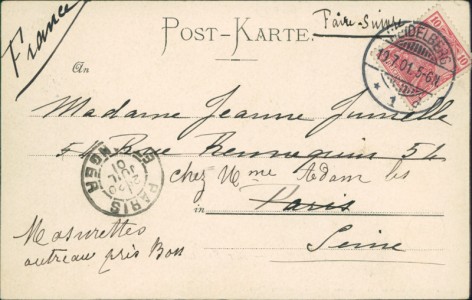 France
Faire-Suivre
POST-KARTE.
HEIDELBERG
19.7.01.5-6N.
* 1
10 10
An
Madame Jeanne Jumelle
54 Rue Rennequin 54
chez Mme Adam les
in Paris
Mesurettes
Seine
autreau près Bon
PARIS
JUIL
01